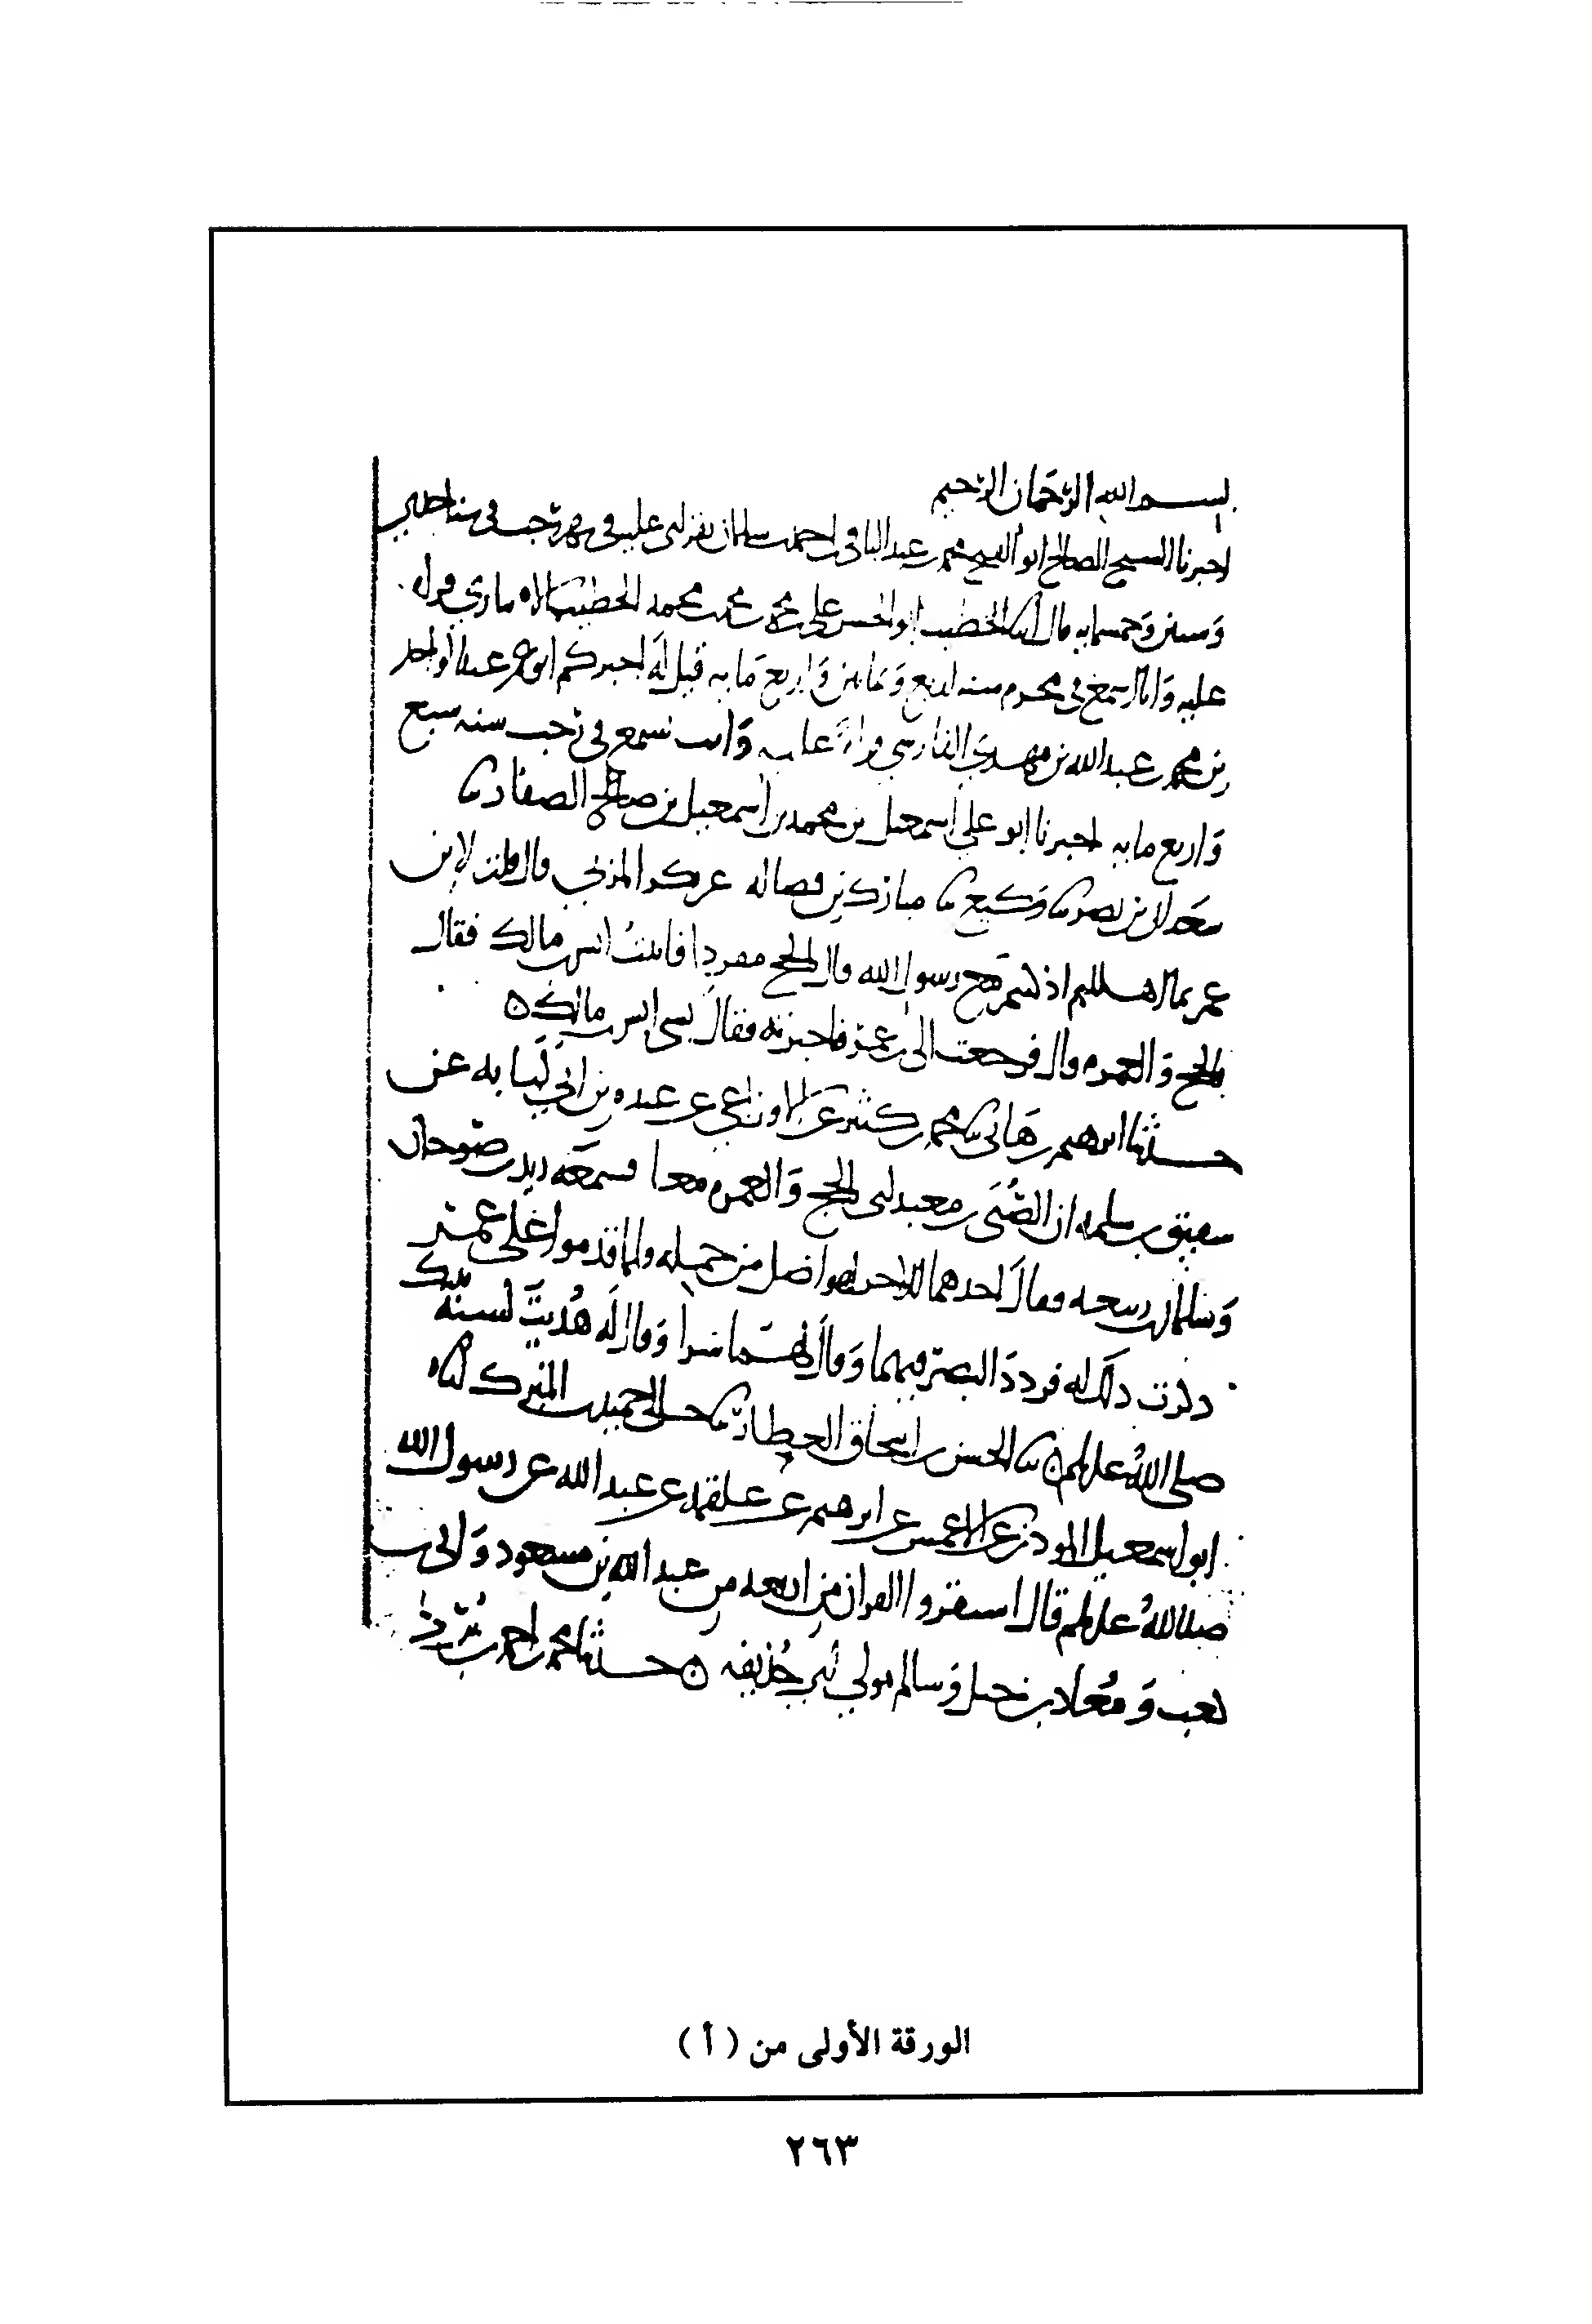 بسم الله الرحمان الرحيم
اخبرنا الشيخ الصالح ابو الفتح محمد بن عبد الباقي بن احمد بن سلمان بقراتي عليه في رجب في سنة احدى
وستين وخمسمايه قال الخطيب ابو الحسن علي بن محمد بن محمد الخطيب الانباري قراه
عليه وانا اسمع في محرم سنه اربع وثمانين واربع مايه قيل له اخبركم ابو عمر عبد الواحد
بن محمد بن عبد الله بن مهدي الفارسي قراة عليه وانت تسمع في رجب سنه سبع
واربع مايه اخبرنا ابو علي اسمعيل بن محمد بن اسمعيل بن صالح الصفار ثنا
سعدان بن نصر ثنا وكيع ثنا مبارك بن فضاله عن بكر المزني قال قلت لابن
عمر بما اهللتم اذ حج رسول الله قال بالحج مفردا فاتيت انس بن مالك فقال
بالحج والعمره قال فرجعت الى بن عمر فاخبرته فقال نسي انس بن مالك ن
حدثنا ابرهيم بن هاني ثنا محمد بن كثير عن الاوزاعي عن عبده بن ابي لبابه عن
شقيق بن سلمه ان الصبي بن معبد لبى بالحج والعمره معا فسمعه زيد بن صوحان
وسلمان بن ربيعه فقال احدهما للاخر لهو اضل من جمله فلما قدموا على عمر
ذكرت ذلك له فردد البصر فيهما وقال وقال له هديت لسنه نبيك
صلى الله عليه وسلم ن ثنا الحسن بن اسحاق العطار ثنا خالي احمد بن المنبرك ثنا
ابو اسمعيل المودب عن الاعمش عن ابرهيم عن علقمه عن عبد الله عن رسول الله
صلى الله عليه وسلم قال استقروا القران من اربعه من عبد الله بن مسعود وابي بن
كعب ومعاذ بن جبل وسالم مولى ابي حذيفه ن حدثنا محمد بن احمد بن برد
الورقة الأولى من ( أ )
٢٦٣